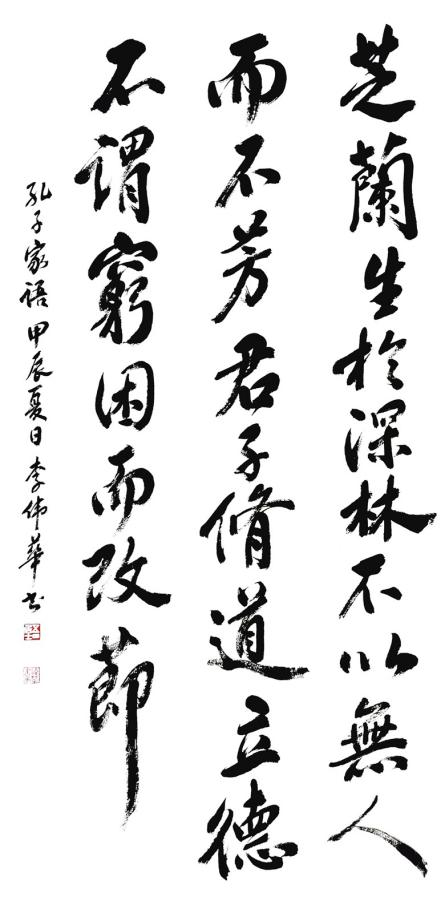 芝蘭生於深林不以無人
而不芳君子脩道立德
不謂窮困而改節
孔子家语甲辰夏日李伟華书